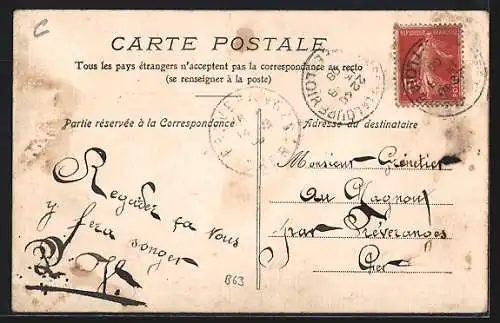 C
CARTE POSTALE
Tous les pays étrangers n'acceptent pas la correspondance au recto
(se renseigner à la poste)
Partie réservée à la Correspondance
Adresse du destinataire
Regarder ça vous
y fera songer
Monsieur Grénetier
au Magnoux
par Préveranges
Cher
B63